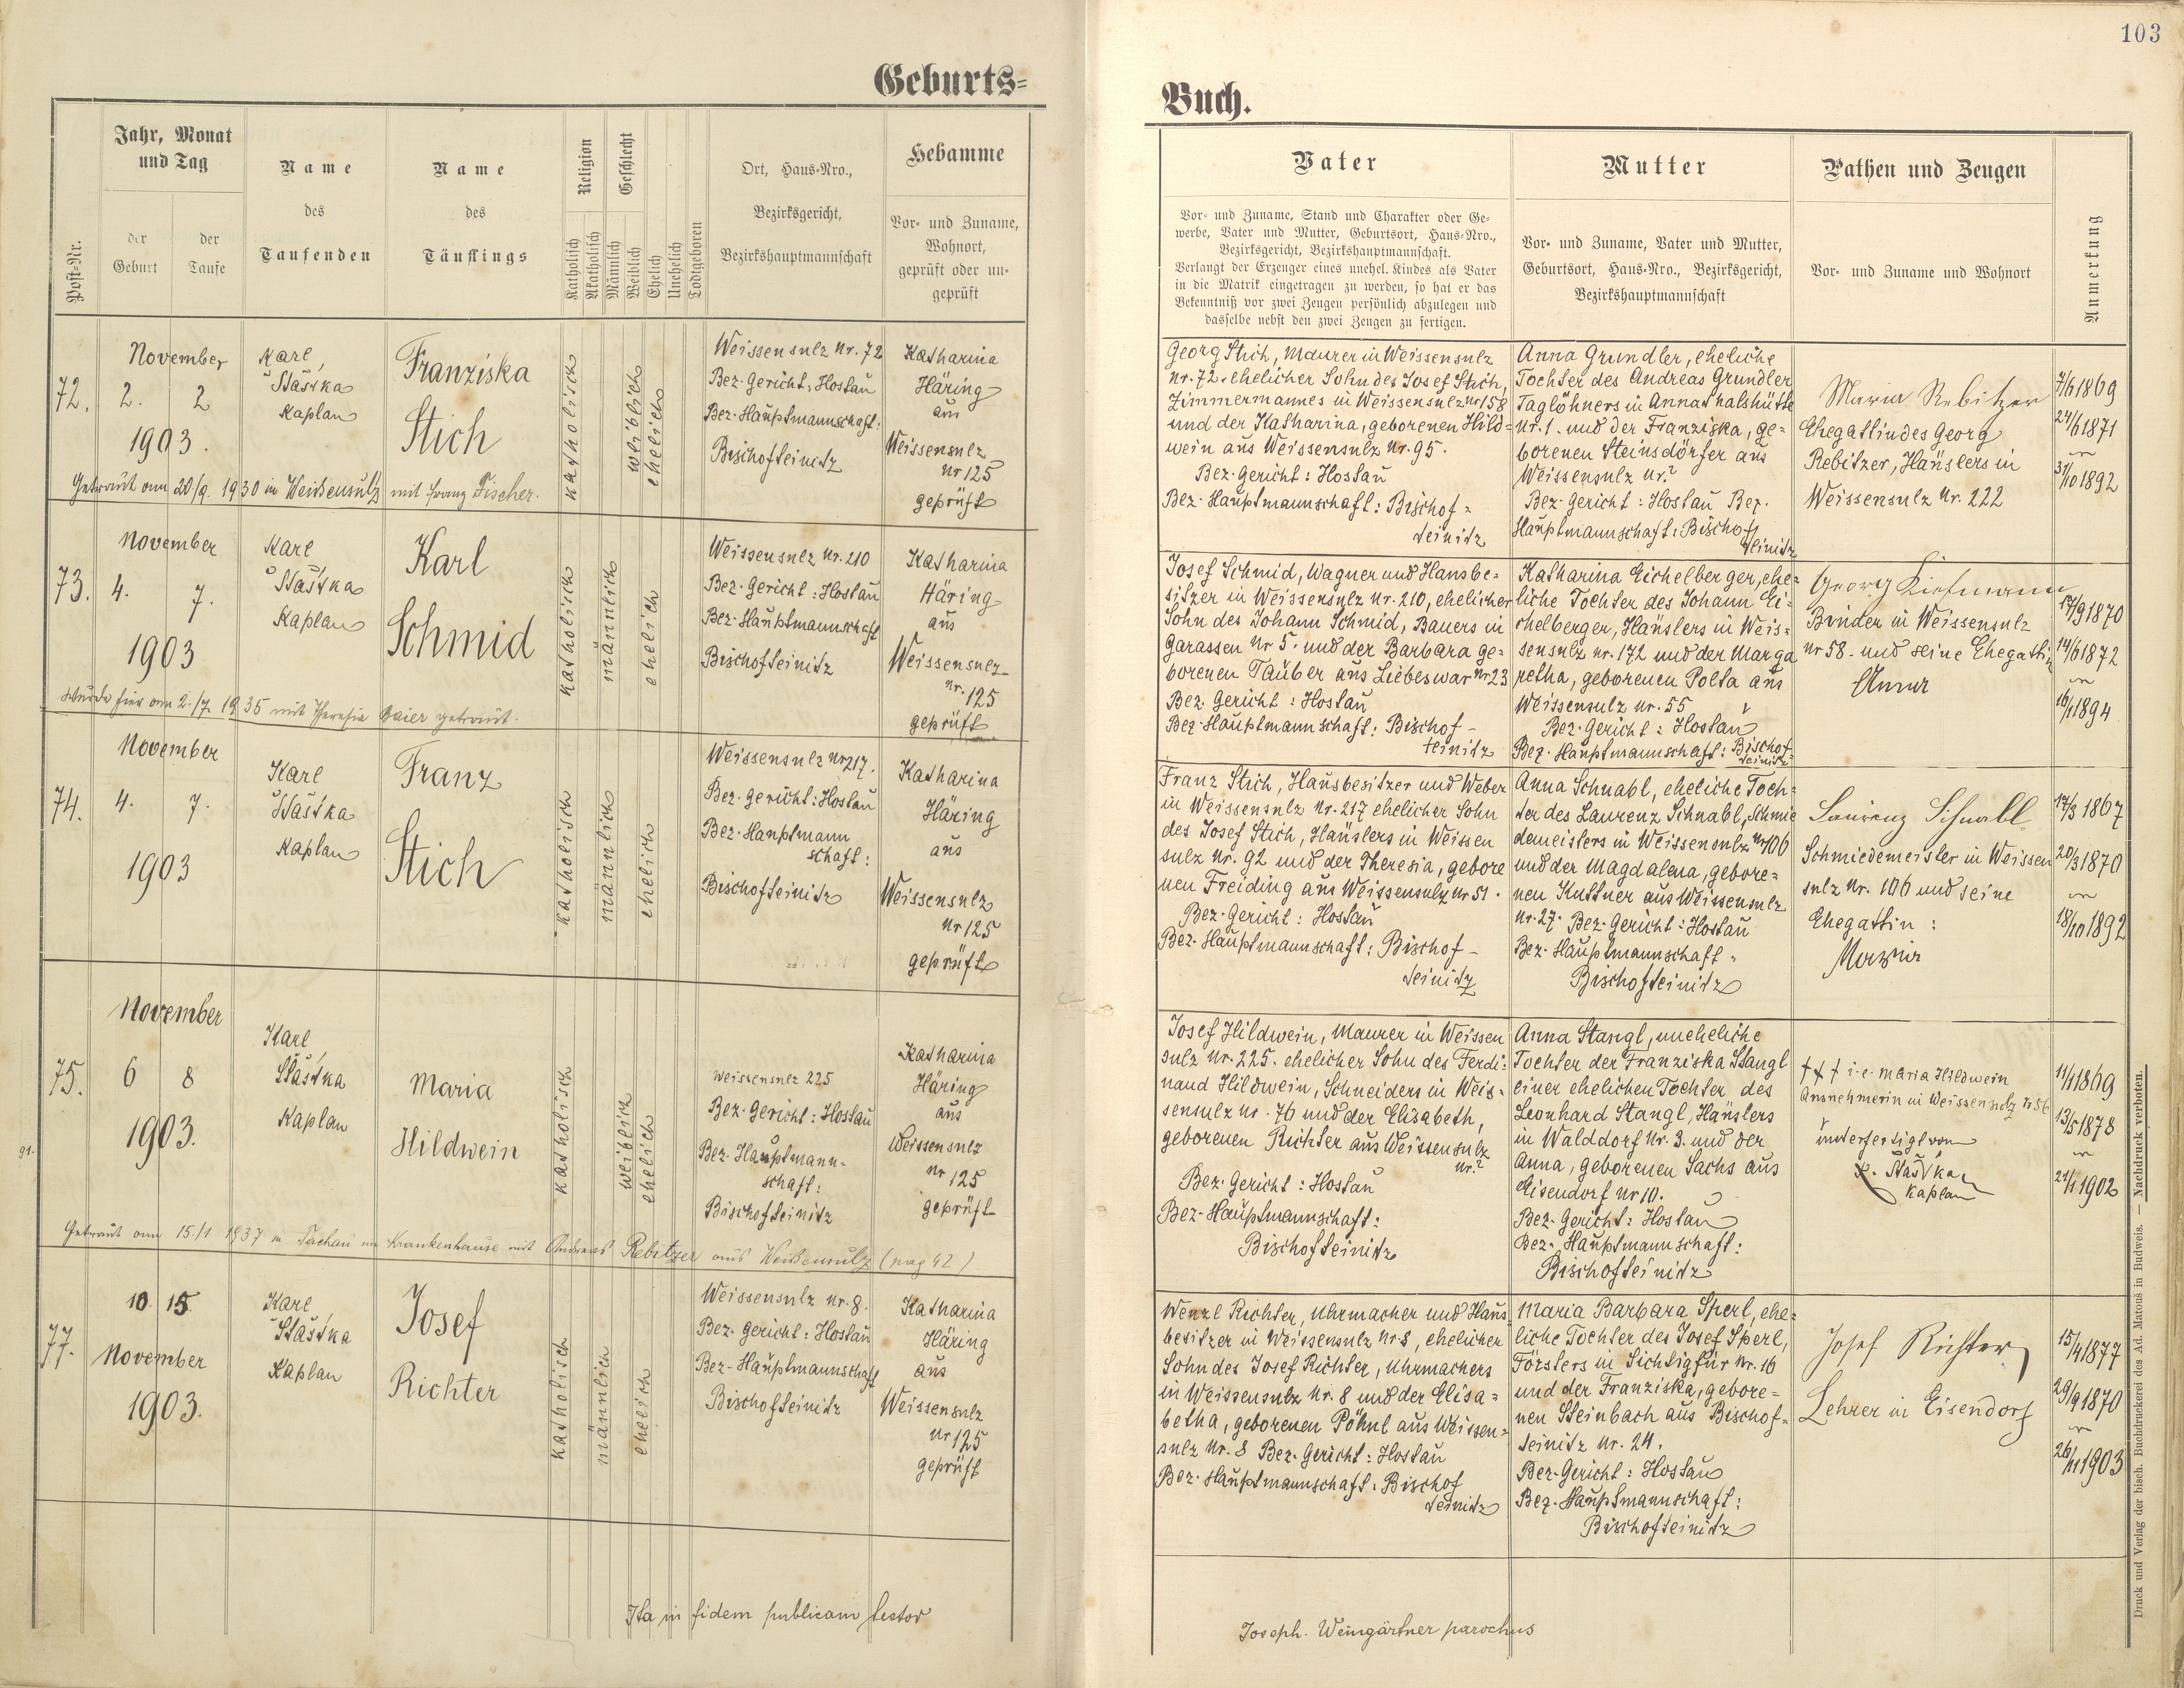 103
Geburts-
Jahr, Monat
und Tag
Name
des
Taufenden
Name
des
Täuflings
Religion
Geschlecht
Ort, Haus-Nro.,
Bezirksgericht,
Bezirkshauptmannschaft
Hebamme
Vor- und Zuname,
Wohnort,
geprüft oder un-
geprüft
Post-Nr.
der
Geburt
der
Taufe
Katholisch
Akatholisch
Männlich
Weiblich
Ehelich
Unehelich
Todtgeboren
72.
November
2. 2
1903.
Karl
Šťastka
Kaplan
Franziska
Stich
katholisch
weiblich
ehelich
Weissensulz Nr. 72
Bez. Gericht: Hostau
Bez-Hauptmannschaft:
Bischofteinitz
Katharina
Häring
aus
Weissensulz
Nr 125
geprüft
Getraut am 20/9. 1930 in Weißensulz mit Franz Fischer.
73.
November
4. 7.
1903
Karl
Šťastka
Kaplan
Karl
Schmid
katholisch
männlich
ehelich
Weissensulz Nr. 210
Bez. Gericht: Hostau
Bez-Hauptmannschaft
Bischofteinitz
Katharina
Häring
aus
Weissensulz
Nr. 125
geprüft
Wurde hier am 2./7. 1935 mit Theresia Gaier getraut.
74.
November
4. 7.
1903
Karl
Šťastka
Kaplan
Franz
Stich
katholisch
männlich
ehelich
Weissensulz Nr 217.
Bez. Gericht: Hostau
Bez. Hauptmann
schaft:
Bischofteinitz
Katharina
Häring
aus
Weissensulz
Nr 125
geprüft
75.
November
6 8
1903.
Karl
Šťastka
Kaplan
Maria
Hildwein
katholisch
weiblich
ehelich
Weissensulz 225
Bez. Gericht: Hostau
Bez. Hauptmann-
schaft:
Bischofteinitz
Katharina
Häring
aus
Weissensulz
Nr 125
geprüft
Getraut am 15./1 1937 in Tachau im Krankenhause mit Andreas Rebitzer aus Weißensulz (pag 42)
77.
10. 15.
November
1903.
Karl
Šťastka
Kaplan
Josef
Richter
katholisch
männlich
ehelich
Weissensulz Nr. 8.
Bez. Gericht: Hostau
Bez-Hauptmannschaft
Bischofteinitz
Katharina
Häring
aus
Weissensulz
Nr 125
geprüft
Ita in fidem publicam testor
Buch.
Vater
Vor- und Zuname, Stand und Charakter oder Ge-
werbe, Vater und Mutter, Geburtsort, Haus-Nro.,
Bezirksgericht, Bezirkshauptmannschaft.
Verlangt der Erzeuger eines unehel. Kindes als Vater
in die Matrik eingetragen zu werden, so hat er das
Bekenntniß vor zwei Zeugen persönlich abzulegen und
dasselbe nebst den zwei Zeugen zu fertigen.
Mutter
Vor- und Zuname, Vater und Mutter,
Geburtsort, Haus-Nro., Bezirksgericht,
Bezirkshauptmannschaft
Pathen und Zeugen
Vor- und Zuname und Wohnort
Anmerkung
Georg Stich, Maurer in Weissensulz
Nr. 72. ehelicher Sohn des Josef Stich,
Zimmermannes in Weissensulz Nr 158
und der Katharina, geborenen Hild-
wein aus Weissensulz Nr. 95.
Bez. Gericht: Hostau
Bez-Hauptmannschaft: Bischof-
teinitz
Anna Grundler, eheliche
Tochter des Andreas Grundler
Taglöhners in Annathalshütte
Nr. 1. und der Franziska, ge-
borenen Steinsdörfer aus
Weissensulz Nr.?
Bez. Gericht: Hostau Bez.
Hauptmannschaft: Bischof
teinitz
Maria Rebitzer
Ehegattin des Georg
Rebitzer, Häuslers in
Weissensulz Nr. 222
7/6 1869
24/6 1871
31/10 1892
Josef Schmid, Wagner und Hausbe-
sitzer in Weissensulz Nr. 210, ehelicher
Sohn des Johann Schmid, Bauers in
Garassen Nr 5. und der Barbara ge-
borenen Täuber aus Liebeswar Nr 23
Bez. Gericht: Hostau
Bez-Hauptmannschaft: Bischof-
teinitz
Katharina Eichelberger, ehe-
liche Tochter des Johann Ei-
chelberger, Häuslers in Weis-
sensulz Nr. 172 und der Marga
retha, geborenen Polta aus
Weissensulz Nr. 55
Bez. Gericht: Hostau
Bez. Hauptmannschaft: Bischof-
teinitz
Georg
Binder in Weissensulz
Nr 58. und seine Ehegattin
Anna
17/9 1870
14/6 1872
16/1 1894
Franz Stich, Hausbesitzer und Weber
in Weissensulz Nr. 217 ehelicher Sohn
des Josef Stich, Häuslers in Weissen
sulz Nr. 92 und der Theresia, gebore
nen Freiding aus Weissensulz Nr 51.
Bez. Gericht: Hostau
Bez. Hauptmannschaft: Bischof-
teinitz
Anna Schnabl, eheliche Toch-
ter des Laurenz Schnabl, Schmie
demeisters in Weissensulz Nr 106
und der Magdalena, gebore-
nen Kuttner aus Weissensulz
Nr. 27. Bez. Gericht: Hostau
Bez. Hauptmannschaft:
Bischofteinitz
Laurenz Schnabl
Schmiedemeister in Weissen
sulz Nr. 106 und seine
Ehegattin:
Maria
17/3 1867
20/3 1870
18/10 1892
Josef Hildwein, Maurer in Weissen
sulz Nr. 225. ehelicher Sohn des Ferdi-
nand Hildwein, Schneiders in Weis-
sensulz Nr. 76 und der Elisabeth,
geborenen Richter aus Weissensulz
Nr.?
Bez. Gericht: Hostau
Bez-Hauptmannschaft:
Bischofteinitz
Anna Stangl, uneheliche
Tochter der Franziska Stangl
einer ehelichen Tochter des
Leonhard Stangl, Häuslers
in Walddorf Nr. 3. und der
Anna, geborenen Sachs aus
Eisendorf Nr 10.
Bez. Gericht: Hostau
Bez. Hauptmannschaft:
Bischofteinitz
††† i.e. Maria Hildwein
Ausnehmerin in Weissensulz N 56
unterfertigt von
K. Šťastka
Kaplan
11/1 1869
13/5 1878
21/1 1902
Wenzl Richter, Uhrmacher und Haus
besitzer in Weissensulz Nr 8, ehelicher
Sohn des Josef Richter, Uhrmachers
in Weissensulz Nr. 8 und der Elisa-
betha, geborenen Pöhnl aus Weissen-
sulz Nr. 8 Bez. Gericht: Hostau
Bez. Hauptmannschaft: Bischof
teinitz
Maria Barbara Sperl, ehe-
liche Tochter des Josef Sperl,
Försters in Sichtigfür Nr. 16
und der Franziska, gebore-
nen Steinbach aus Bischof-
teinitz Nr. 24.
Bez. Gericht: Hostau
Bez. Hauptmannschaft:
Bischofteinitz
Josef Richter
Lehrer in Eisendorf
15/4 1877
29/9 1870
26/11 1903
Joseph. Weingärtner parochus
Druck und Verlag der bisch. Buchdruckerei des Ad. Matouš in Budweis. — Nachdruck verboten.